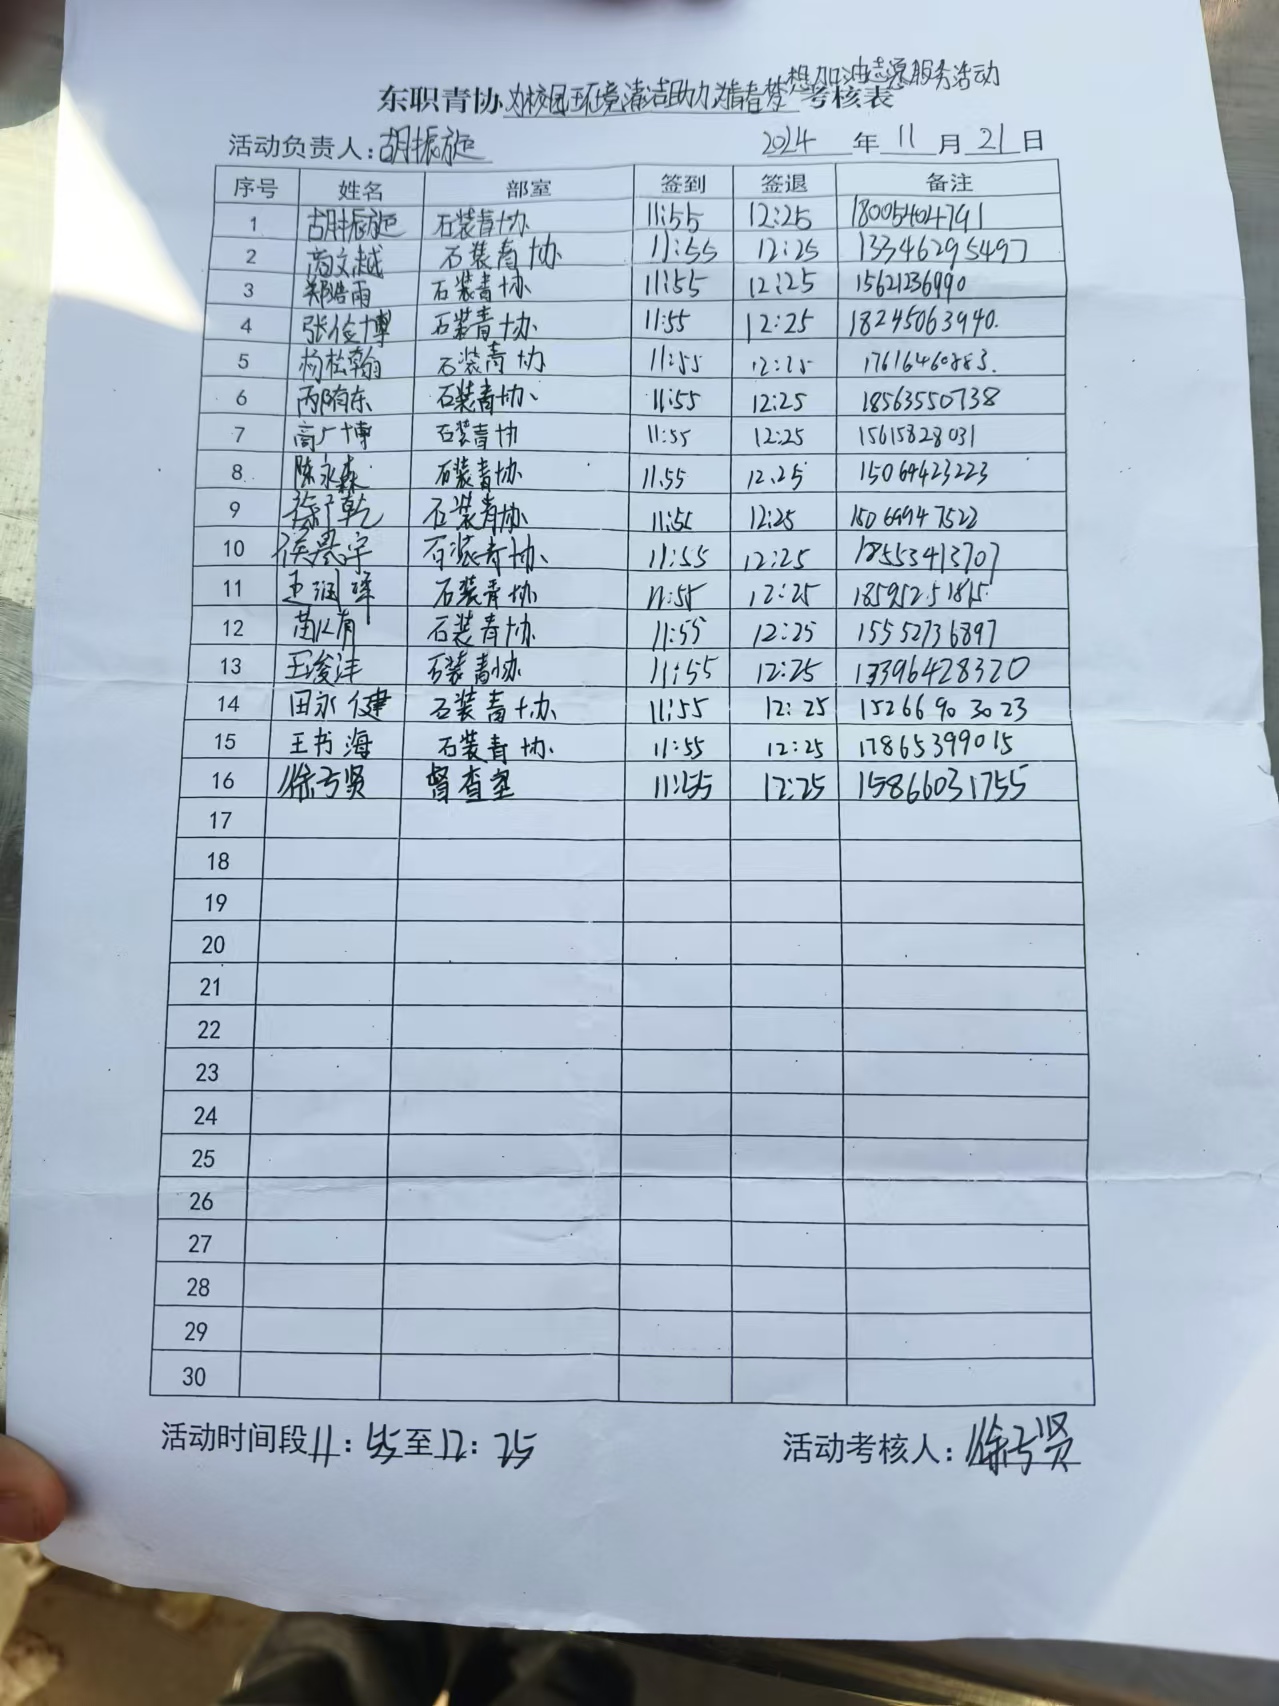 东职青协为校园环境清洁助力为青春梦想加油志愿服务活动考核表
活动负责人:胡振旋 2024年11月21日
序号 姓名 部室 签到 签退 备注
1 胡振旋 石装青协 11:55 12:25 18005404791
2 高文越 石装青协 11:55 12:25 13346295497
3 郑皓雨 石装青协 11:55 12:25 15621236990
4 张俊博 石装青协 11:55 12:25 18245063940.
5 杨松翰 石装青协 11:55 12:25 17616460883.
6 石装青协 11:55 12:25 18563550738
7 高广博 石装青协 11:55 12:25 15615828031
8 陈永森 石装青协 11.55 12.25 15069423223
9 石装青协 11:55 12:25 15069947522
10 侯晨宇 石装青协 11:55 12:25 18553413707
11 石装青协 11:55 12:25 18595251815
12 石装青协 11:55 12:25 15552736897
13 王浚沣 石装青协 11:55 12:25 13396428320
14 田永健 石装青协 11:55 12:25 15266903023
15 王书海 石装青协 11:55 12:25 17865399015
16 徐亏贤 督查室 11:55 12:25 15866031755
17
18
19
20
21
22
23
24
25
26
27
28
29
30
活动时间段11:55至12:25 活动考核人:徐亏贤